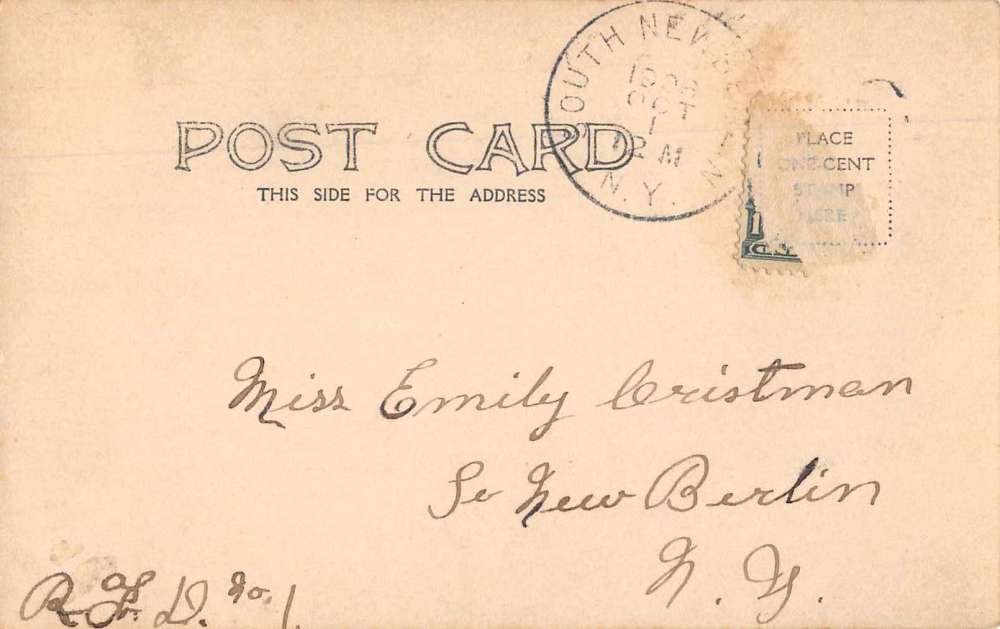 SOUTH NEW BERLIN
N.Y.
OCT
1
12 M
POST CARD
THIS SIDE FOR THE ADDRESS
PLACE
ONE CENT
STAMP
HERE
1
Miss Emily Cristman
So New Berlin
N. Y.
R. F. D. No. 1.